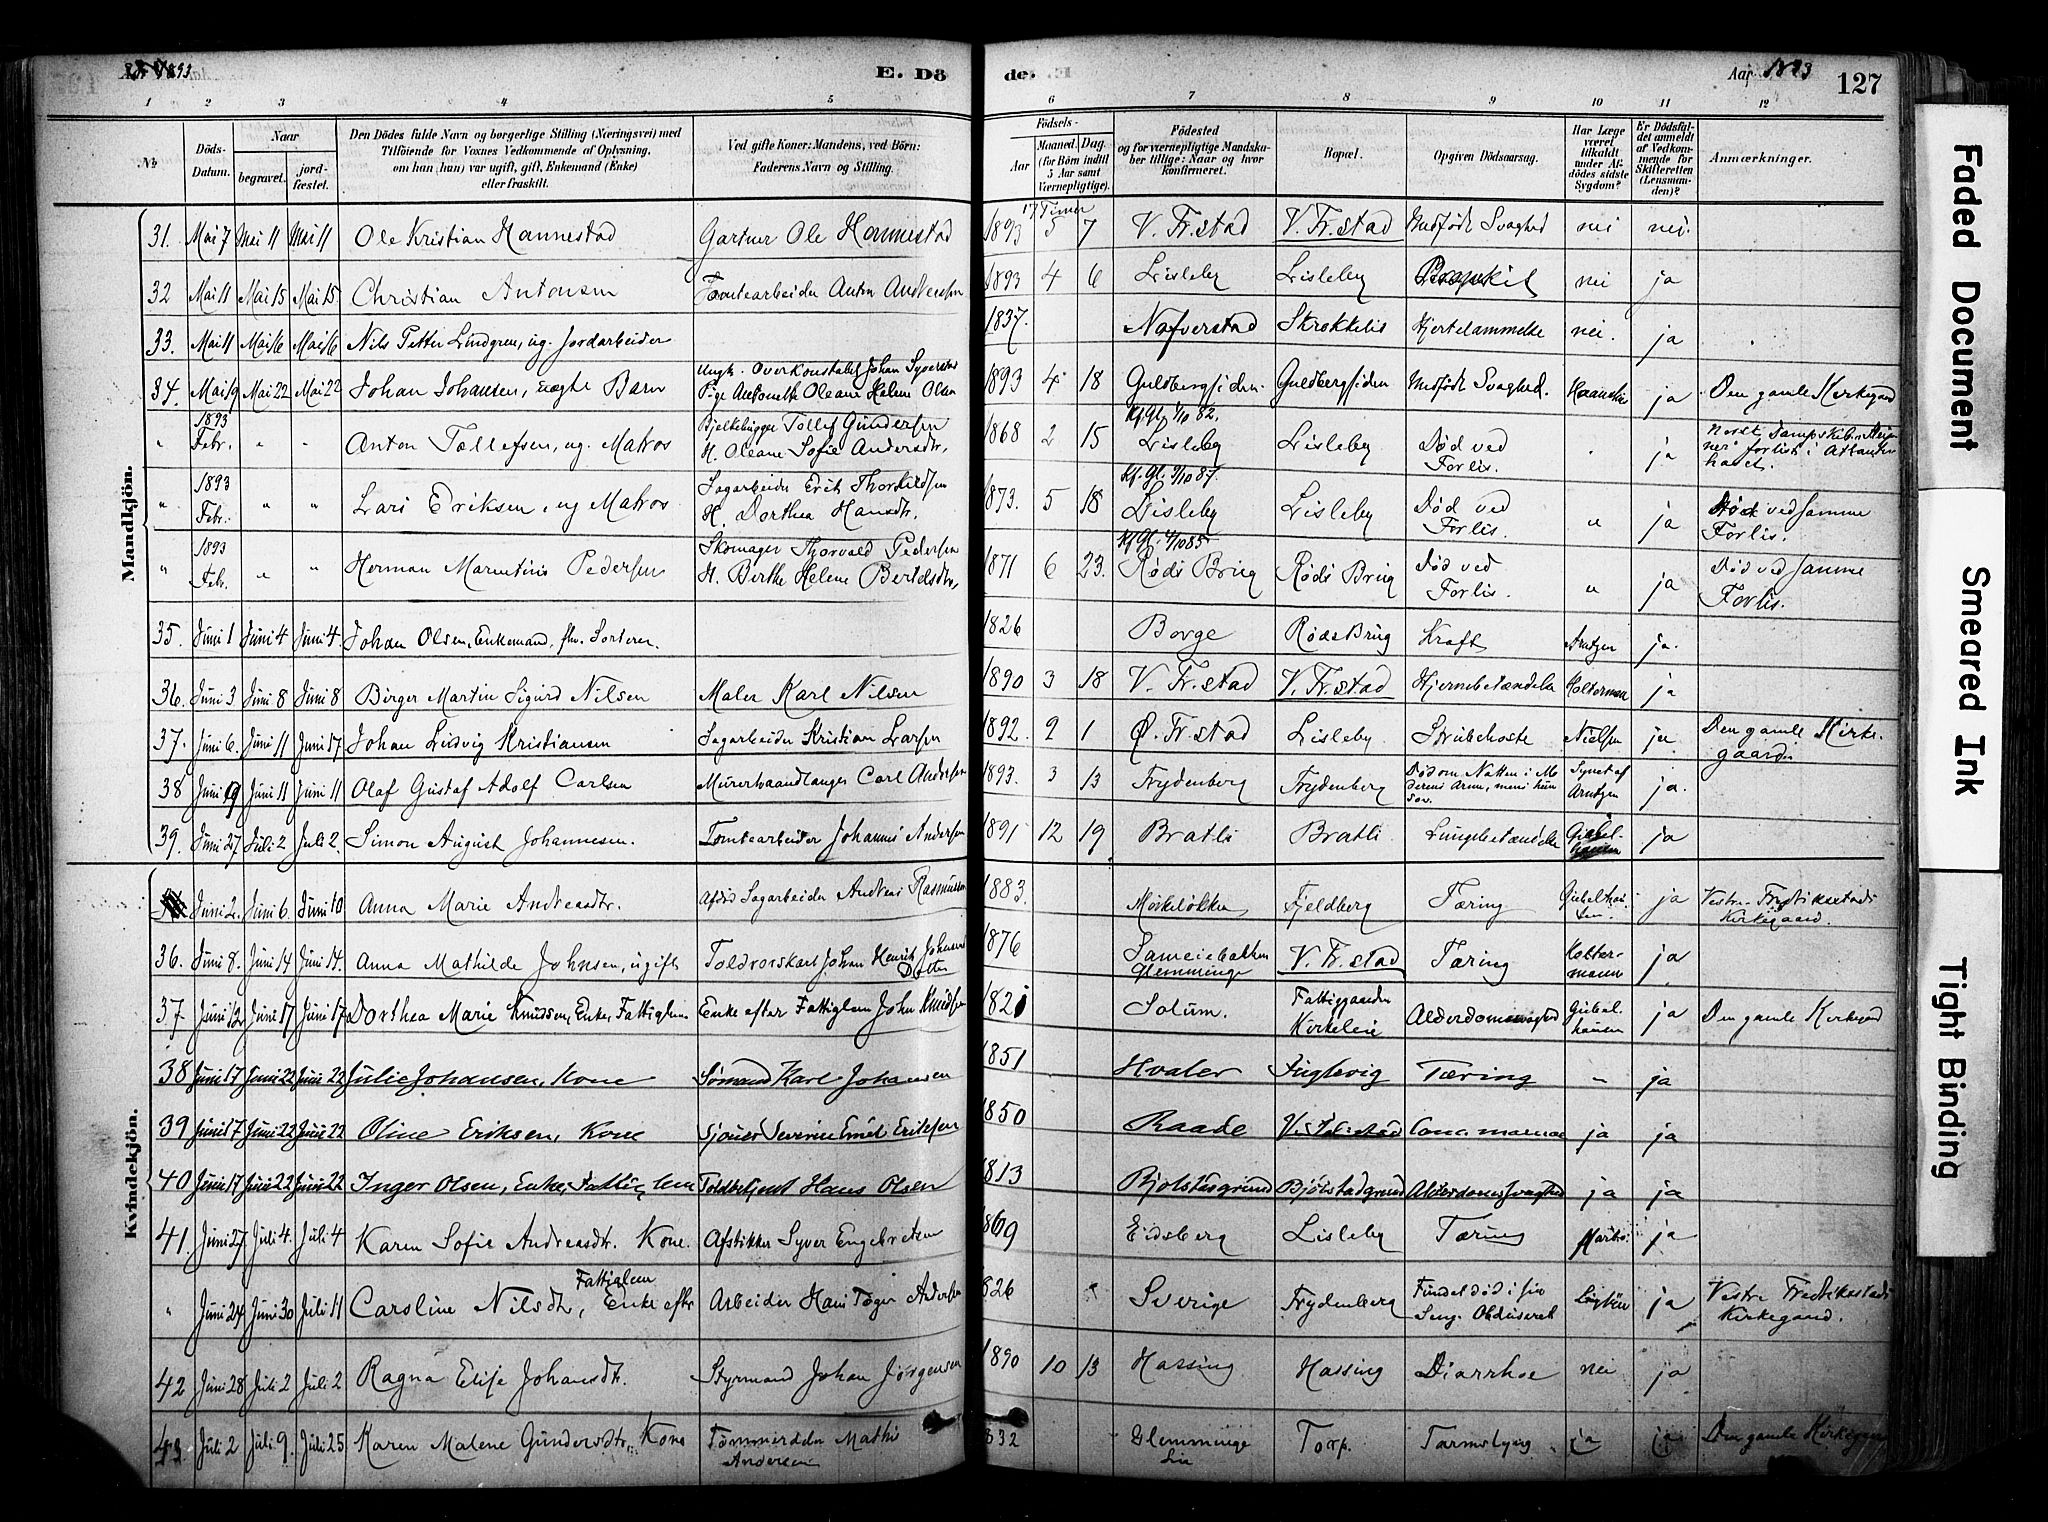 1893
E. Dö
de.
Aar 1893
127
1 2 3 4 5 6 7 8 9 10 11 12
No
Döds-Datum.
Naar
begravet.
jord-fæstet.
Den Dödes fulde Navn og borgerlige Stilling (Næringsvei) med
Tilföiende for Voxnes Vedkommende af Oplysning,
om han (hun) var ugift, gift, Enkemand (Enke)
eller fraskilt.
Ved gifte Koner: Mandens, ved Börn:
Faderens Navn og Stilling.
Födsels-
Aar
Maaned. Dag.
(for Börn indtil
5 Aar samt
Værnepligtige).
Födested
og for værnepligtige Mandska-
ber tillige: Naar og hvor
konfirmeret.
Bopæl.
Opgiven Dödsaarsag.
Har Læge
været
tilkaldt
under Af-
dödes sidste
Sygdom?
Er Dödsfal-
det anmeldt
af Vedkom-
mende for
Skifteretten
(Lensman-
den)?
Anmærkninger.
Mandkjön.
17 Timer
31. Mai 7 Mai 11 Mai 11 Ole Kristian Hannestad Gartner Ole Hannestad 1893 5 7 V. Fr.stad V. Fr.stad Medfødt Svaghed nei nei.
32 Mai 11 Mai 15 Mai 15. Christian Antonsen Tomtearbeider Anton Andersen 1893 4 6 Lisleby Lisleby nei ja
33. Mai 11 Mai 16 Mai 16 Nils Petter Lindgren, ug. Jordarbeider 1837. Nafverstad Skrokkelis Hjertelammelse nei. ja
34. Mai 19 Mai 22 Mai 22 Johan Johansen, uægte Barn Ungk. Overkonstabel Johan Syversen
Pige Antonette Oleane Helene Olsen 1893 4 18 Guldbergsiden. Guldbergsiden Medfødt Svaghed. ja Den gamle Kirkegaard
" 1893 Febr. " " Anton Tollefsen, ug. Matros Bjelkehugger Tollef Gundersen
H. Oleane Sofie Andersdtr. 1868 2 15 Kf. Gl. 1/10 82. Lisleby Lisleby Død ved Forlis. ja
forlist i Atlanter
havet.
" 1893 Febr. " " Lars Eriksen, ug Matros Sagarbeider Erik Thorkildsen
H. Dorthea Hansdtr. 1873. 5 18 Lisleby Lisleby Død ved Forlis. " ja Død ved samme Forlis.
" 1893 Febr. " " Herman Marentius Pedersen Skomager Thorvald Pedersen
H. Berthe Helene Bertelsdtr, 1871 6 23. Røds Brug Røds Brug Død ved Forlis. " ja Død ved samme Forlis.
35. Juni 1 Juni 4 Juni 4. Johan Olsen, Enkemand, fhv. Sorterer. 1826 Borge Røds Brug Kræft Arntzen ja.
36. Juni 3 Juni 8 Juni 8 Birger Martin Sigurd Nilsen Maler Karl Nilsen 1890 3 18 V. Fr.stad V. Fr.stad Hjernebetændelse Holterman ja
37. Juni 6. Juni 11 Juni 17 Johan Ludvig Kristiansen Sagarbeider Kristian Larsen 1892. 2 1 Ø. Fr.stad Lisleby Strubehoste Nielsen ja Den gamle Kirke-
gaard
38 Juni 9 Juni 11 Juni 11 Olaf Gustaf Adolf Carlsen Murerhaandlanger Carl Andersen 1893. 3 13 Frydenberg Frydenberg Død om Natten i Mo
derens Arme, mens hun
sov. Synet af
Arntzen ja.
39. Juni 27 Juli 2 Juli 2. Simon August Johannesen. Tomtearbeider Johannes Andersen 1891 12 19 Bratli Bratli Lungebetændelse ja
Kvindekjön.
Juni 2. Juni 6. Juni 10 Anna Marie Andreasdtr. Afdøde Sagarbeider Andreas Rasmussen 1883. Mørkeløkken Fjeldberg Tæring Gibelhau-
sen. ja Vestre Fredriksstads
Kirkegaard.
36. Juni 8. Juni 14 Juni 14. Anna Mathilde Johnsen, ugift Toldrorskarl Johan Henrik Johnsens
Datter 1876 Sameiebakken
Glemminge V. Fr.stad Tæring Holter-
mann ja
37 Juni 12 Juni 17 Juni 17 Dorthea Marie Knudsen, Enke, Fattiglem Enke efter Fattiglem John Knudsen 1821 Solum. Fattiggaarden
Kirkeleie Alderdomssvaghed Gibel-
hausen ja Den gamle Kirkegaard
38 Juni 17 Juni 22 Juni 22 Julie Johansen, Kone Sømand Karl Johansen 1851 Hvaler Fuglevig Tæring " ja
39 Juni 17 Juni 22 Juni 22 Oline Eriksen, Kone Severin Emil Eriksen 1850 Raade V. Fr.stad Canc. mamae ja ja
40 Juni 17 Juni 22 Juni 22 Inger Olsen, Enke, Fattiglem Toldbetjent Hans Olsen 1813 Bjølstadgrund Bjølstadgrund Alderdomssvaghed ja ja
41. Juni 27. Juli 4. Juli 4 Karen Sofie Andreasdtr. Kone. Afstikker Syver Engebretsen 1869 Eidsberg Lisleby Tæring ja
" Juni 24 Juni 30 Juli 11 Caroline Nilsdtr, Fattiglem Enke efter Arbeider Hans Toger Andersen 1826 Sverige Frydenberg Fundet død i sin
Seng. Obduseret ja Vestre Fredriksstads
Kirkegaard.
42 Juni 28 Juli 2 Juli 2 Ragna Elise Johansdtr. Styrmand Johan Jørgensen 1890 10 13 Hassing Hassing Diarrhoe nei ja
43. Juli 2 Juli 9. Juli 25 Karen Malene Gundersdtr., Kone Tømmerdeler Mathis
Andersen 1832 Glemminge Torp. Tarmslyng ja ja Den gamle Kirkegaard
Faded Document
Smeared Ink
Tight Binding